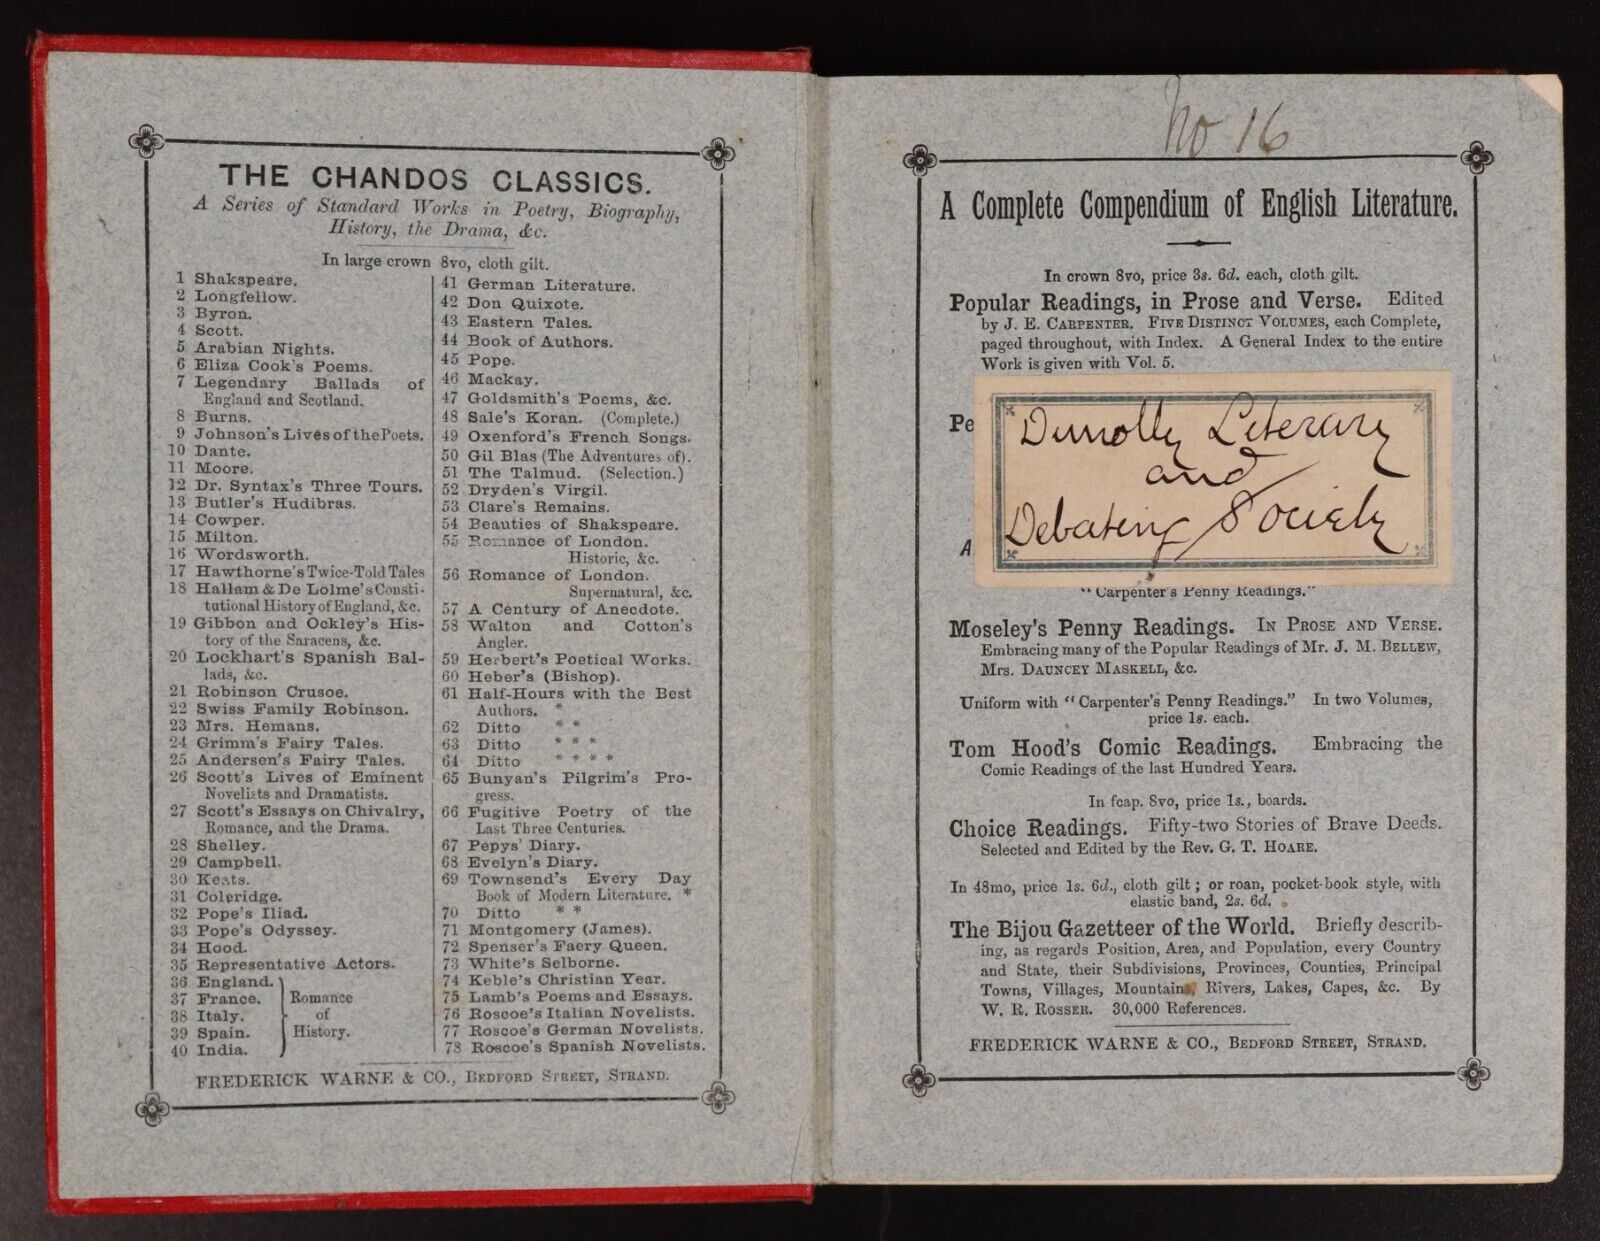 THE CHANDOS CLASSICS.
A Series of Standard Works in Poetry, Biography,
History, the Drama, &c.
In large crown 8vo, cloth gilt.
1 Shakspeare.
2 Longfellow.
3 Byron.
4 Scott.
5 Arabian Nights.
6 Eliza Cook's Poems.
7 Legendary Ballads of
England and Scotland.
8 Burns.
9 Johnson's Lives of the Poets.
10 Dante.
11 Moore.
12 Dr. Syntax's Three Tours.
13 Butler's Hudibras.
14 Cowper.
15 Milton.
16 Wordsworth.
17 Hawthorne's Twice-Told Tales
18 Hallam & De Lolme's Consti-
tutional History of England, &c.
19 Gibbon and Ockley's His-
tory of the Saracens, &c.
20 Lockhart's Spanish Bal-
lads, &c.
21 Robinson Crusoe.
22 Swiss Family Robinson.
23 Mrs. Hemans.
24 Grimm's Fairy Tales.
25 Andersen's Fairy Tales.
26 Scott's Lives of Eminent
Novelists and Dramatists.
27 Scott's Essays on Chivalry,
Romance, and the Drama.
28 Shelley.
29 Campbell.
30 Keats.
31 Coleridge.
32 Pope's Iliad.
33 Pope's Odyssey.
34 Hood.
35 Representative Actors.
36 England.
37 France. Romance
38 Italy. of
39 Spain. History.
40 India.
41 German Literature.
42 Don Quixote.
43 Eastern Tales.
44 Book of Authors.
45 Pope.
46 Mackay.
47 Goldsmith's Poems, &c.
48 Sale's Koran. (Complete.)
49 Oxenford's French Songs.
50 Gil Blas (The Adventures of).
51 The Talmud. (Selection.)
52 Dryden's Virgil.
53 Clare's Remains.
54 Beauties of Shakspeare.
55 Romance of London.
Historic, &c.
56 Romance of London.
Supernatural, &c.
57 A Century of Anecdote.
58 Walton and Cotton's
Angler.
59 Herbert's Poetical Works.
60 Heber's (Bishop).
61 Half-Hours with the Best
Authors. *
62 Ditto * *
63 Ditto * * *
64 Ditto * * * *
65 Bunyan's Pilgrim's Pro-
gress.
66 Fugitive Poetry of the
Last Three Centuries.
67 Pepys' Diary.
68 Evelyn's Diary.
69 Townsend's Every Day
Book of Modern Literature. *
70 Ditto * *
71 Montgomery (James).
72 Spenser's Faery Queen.
73 White's Selborne.
74 Keble's Christian Year.
75 Lamb's Poems and Essays.
76 Roscoe's Italian Novelists.
77 Roscoe's German Novelists.
78 Roscoe's Spanish Novelists.
FREDERICK WARNE & CO., BEDFORD STREET, STRAND.
No 16
A Complete Compendium of English Literature.
In crown 8vo, price 3s. 6d. each, cloth gilt.
Popular Readings, in Prose and Verse. Edited
by J. E. CARPENTER. FIVE DISTINCT VOLUMES, each Complete,
paged throughout, with Index. A General Index to the entire
Work is given with Vol. 5.
Pe
Dunolly Literary
and
Debating Society
A
"Carpenter's Penny Readings."
Moseley's Penny Readings. IN PROSE AND VERSE.
Embracing many of the Popular Readings of Mr. J. M. BELLEW,
Mrs. DAUNCEY MASKELL, &c.
Uniform with "Carpenter's Penny Readings." In two Volumes,
price 1s. each.
Tom Hood's Comic Readings. Embracing the
Comic Readings of the last Hundred Years.
In fcap. 8vo, price 1s., boards.
Choice Readings. Fifty-two Stories of Brave Deeds.
Selected and Edited by the Rev. G. T. HOARE.
In 48mo, price 1s. 6d., cloth gilt; or roan, pocket-book style, with
elastic band, 2s. 6d.
The Bijou Gazetteer of the World. Briefly describ-
ing, as regards Position, Area, and Population, every Country
and State, their Subdivisions, Provinces, Counties, Principal
Towns, Villages, Mountains, Rivers, Lakes, Capes, &c. By
W. R. ROSSER. 30,000 References.
FREDERICK WARNE & CO., BEDFORD STREET, STRAND.